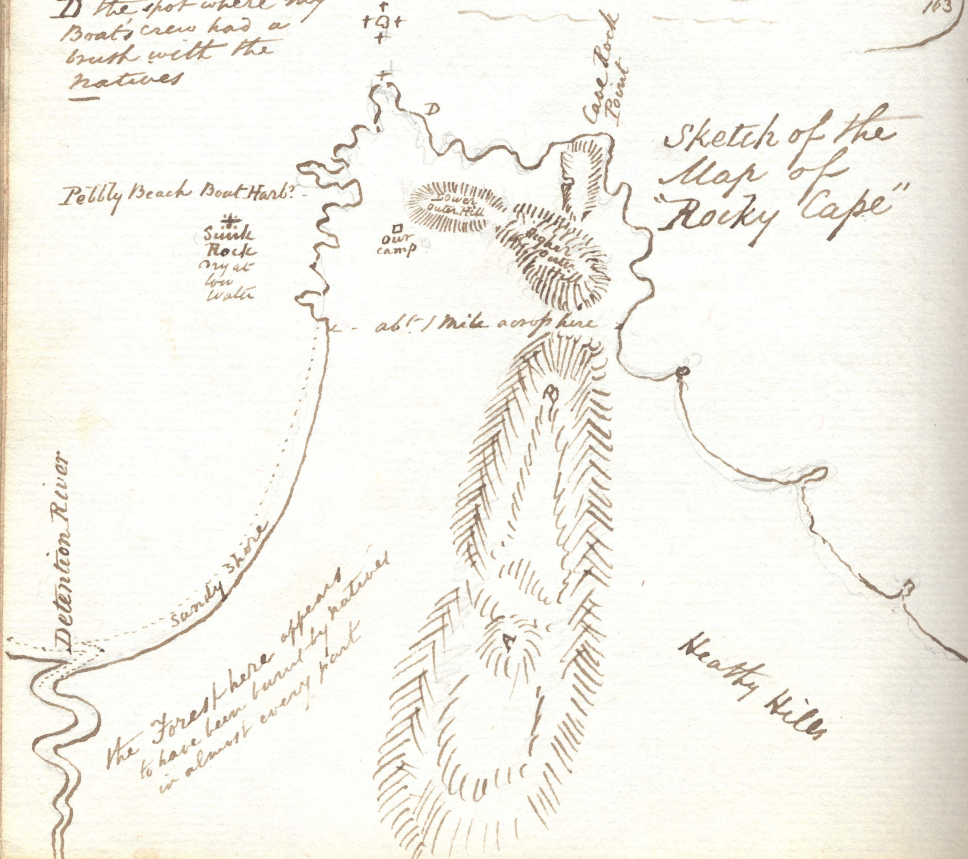 D the spot where my
Boat's crew had a
brush with the
natives
163
Cave Rock
Point
D
Sketch of the
Map of
"Rocky Cape"
Pebbly Beach Boat Harbr.
Sunk
Rock
Dry at
low
Water
Lower
outer Hill
our
camp
Higher
outer
Hill
abt. 1 Mile across here
B
Detention River
Sandy Shore
the Forest here appears
to have been burnt by natives
in almost every part
A
Heathy Hills